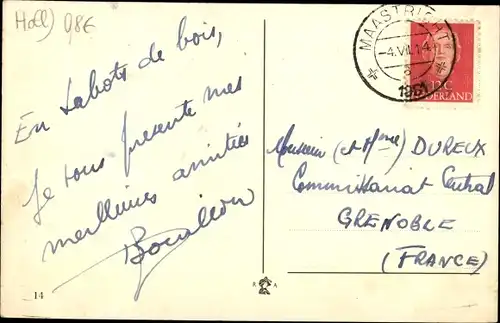 Holl) 0,8€
MAASTRICHT
-4.VII.14
1961
12C
NEDERLAND
En sabots de bois,
Je vous présente mes
meilleures amitiés
Monsieur (et Mme) DUREUX
Commissariat Central
GRENOBLE
(FRANCE)
14